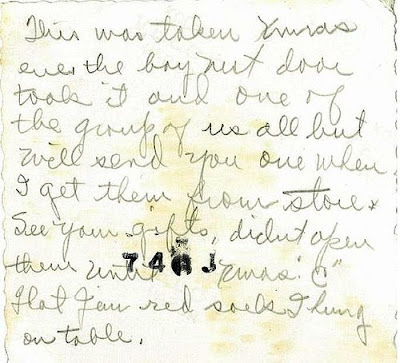 This was taken Xmas
eve. the boy next door
took it and one of
the group of us all but
will send you one when
I get them from store x
See your gifts, didn't open
them until Xmas.
746J
red socks I hung
on table.